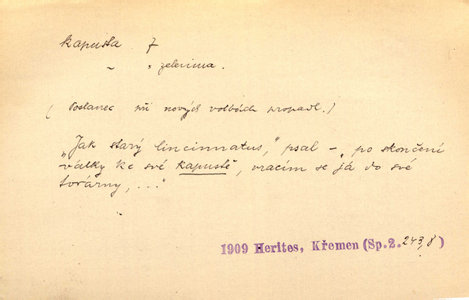 kapusta 7
„ , zelenina.
(Poslanec při nových volbách propadl.)
„Jak starý Cincinnatus," psal – „po skončení
války ke své kapustě, vracím se já do své
továrny, ..."
1909 Herites, Křemen (Sp.2. 243,8)